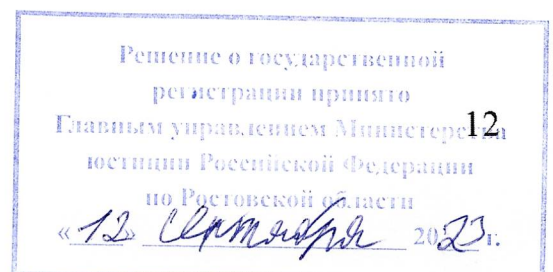 Решение о государственной
регистрации принято
Главным управлением Министерства
12
юстиции Российской Федерации
по Ростовской области
« 12 » сентября 2023 г.